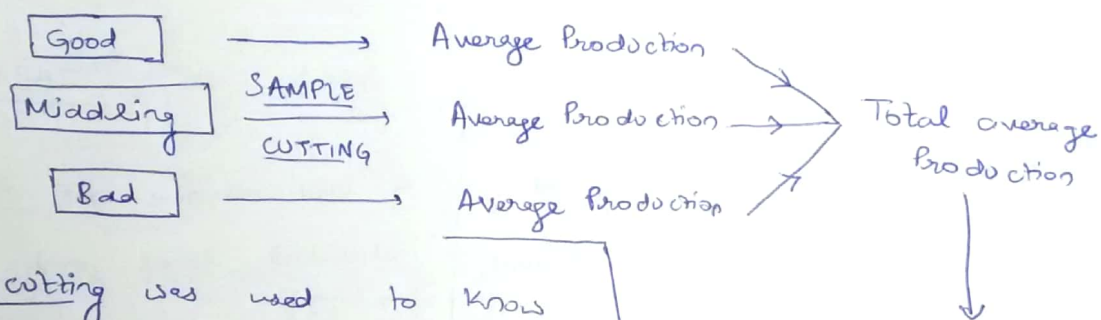 Good Average Production
Middling SAMPLE CUTTING Average Production Total average Production
Bad Average Production
cutting was used to know